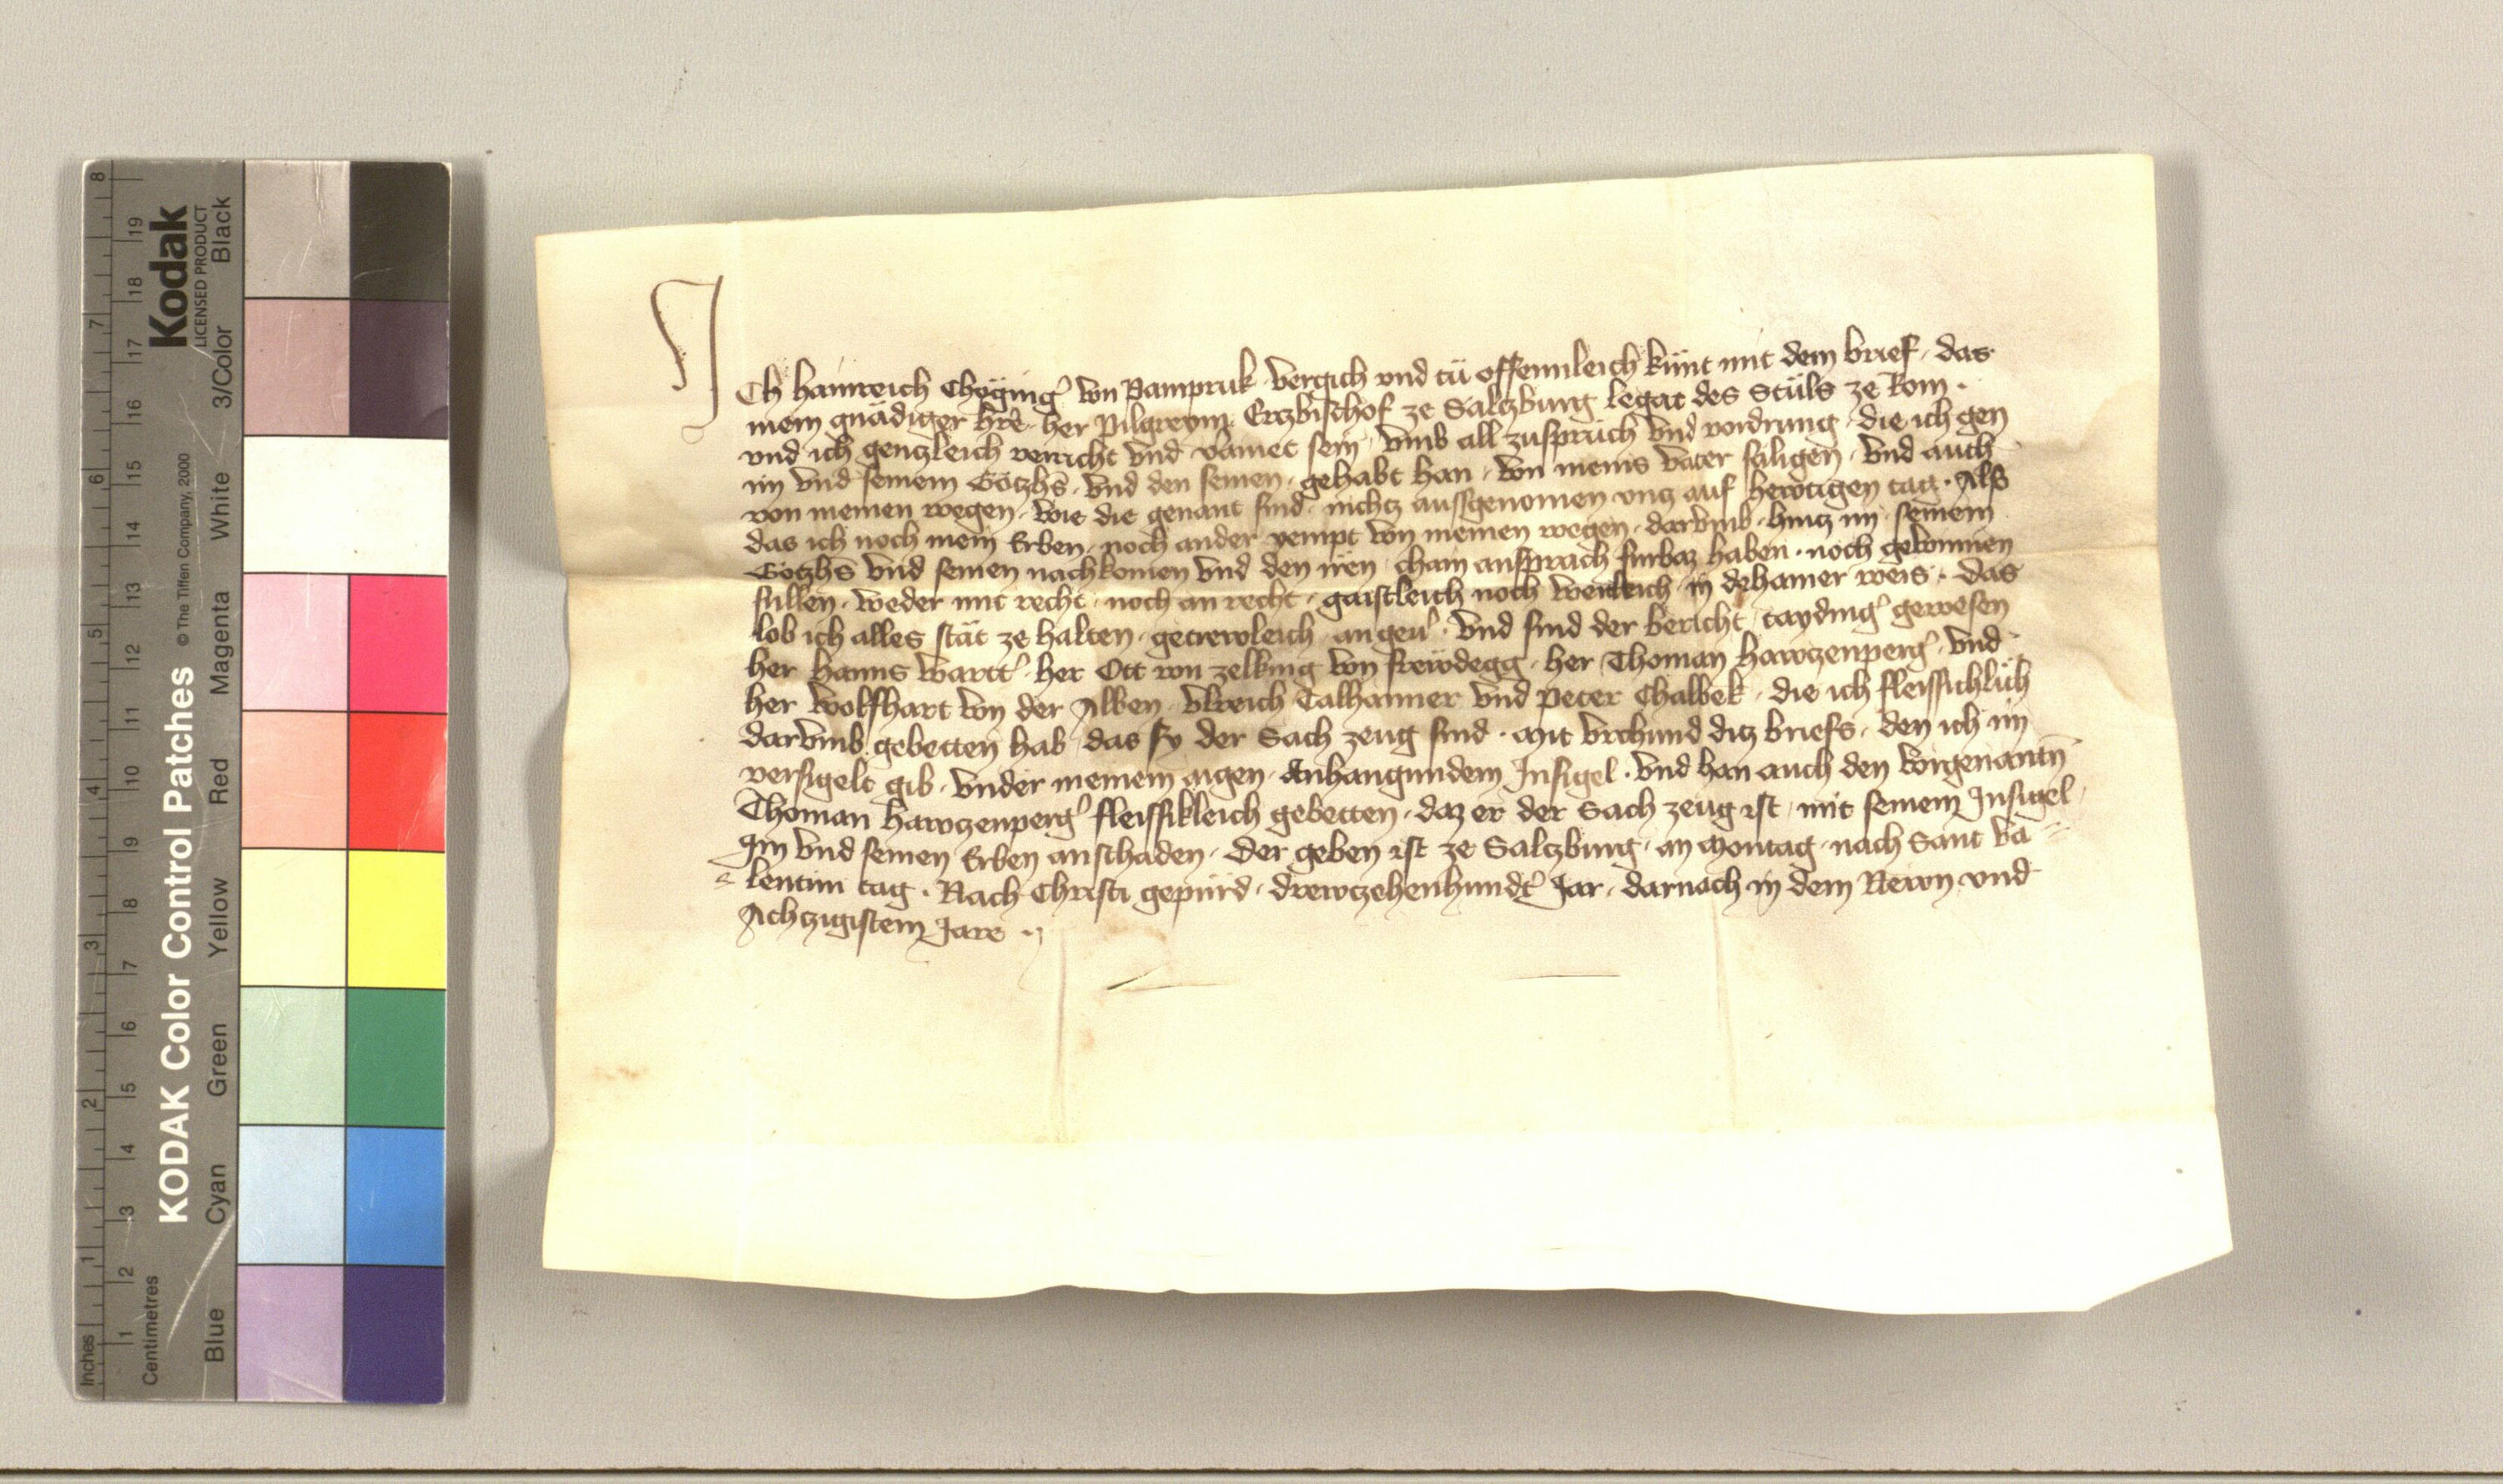 Kodak
LICENSED PRODUCT
KODAK Color Control Patches © The Tiffen Company, 2000
Blue Cyan Green Yellow Red Magenta White 3/Color Black
Inches 1 2 3 4 5 6 7 8
Centimetres 1 2 3 4 5 6 7 8 9 10 11 12 13 14 15 16 17 18 19
Ich Hainreich von vergich vnd tu offennleich kunt mit dem brief · das
mein gnädiger her Pilgreym Ertzbischof ze Saltzburg legat des Stuls ze Rom ·
vnd ich gentzleich verricht vnd veraint sein · vmb all zuspruch vnd vordrung · die ich gen
im vnd seinem Gotzhs · vnd den seinen · gehabt han · von meins vater säligen · vnd auch
von meinen wegen · wie die genant sind · nichtz aussgenomen vntz auf hewtigen tag · Also
das ich noch mein Erben · noch ander yempt von meinen wegen · darvmb · hintz im seinem
Gotzhs vnd seinen nachkomen vnd den iren chain ansprach furbaz haben · noch gewinnen
sullen · weder mit recht · noch an recht · gaistleich noch weltleich in dehainer weis · Das
lob ich alles stät ze halten · getrewleich an geu͛ · Vnd sind der bericht tayding͛ gewesen
her Hanns her Ott von Zelking von · her Thoman Hawtzenperg͛ · vnd
her Wolfhart von der Alben · Vlreich Talhaimer vnd Peter Chalbek · die ich fleissichlich
darvmb gebetten hab das sy der Sach zeug sind · Mit vrchund ditz briefs · den ich im
versigelt gib · vnder meinem aigen · Anhangundem Insigel · Vnd han auch den vorgenantn̄
Thoman Hawtzenperg͛ fleissikleich gebetten · daz er der Sach zeug ist · mit seinem Insigel
Im vnd seinen Erben an schaden · Der geben ist ze Saltzburg · an Montag · nach Sant Va=
=lentini tag · Nach Christi gepurd · drewtzehenhundt͛ Jar · darnach in dem Newn vnd
Achtzigistem Jare ·